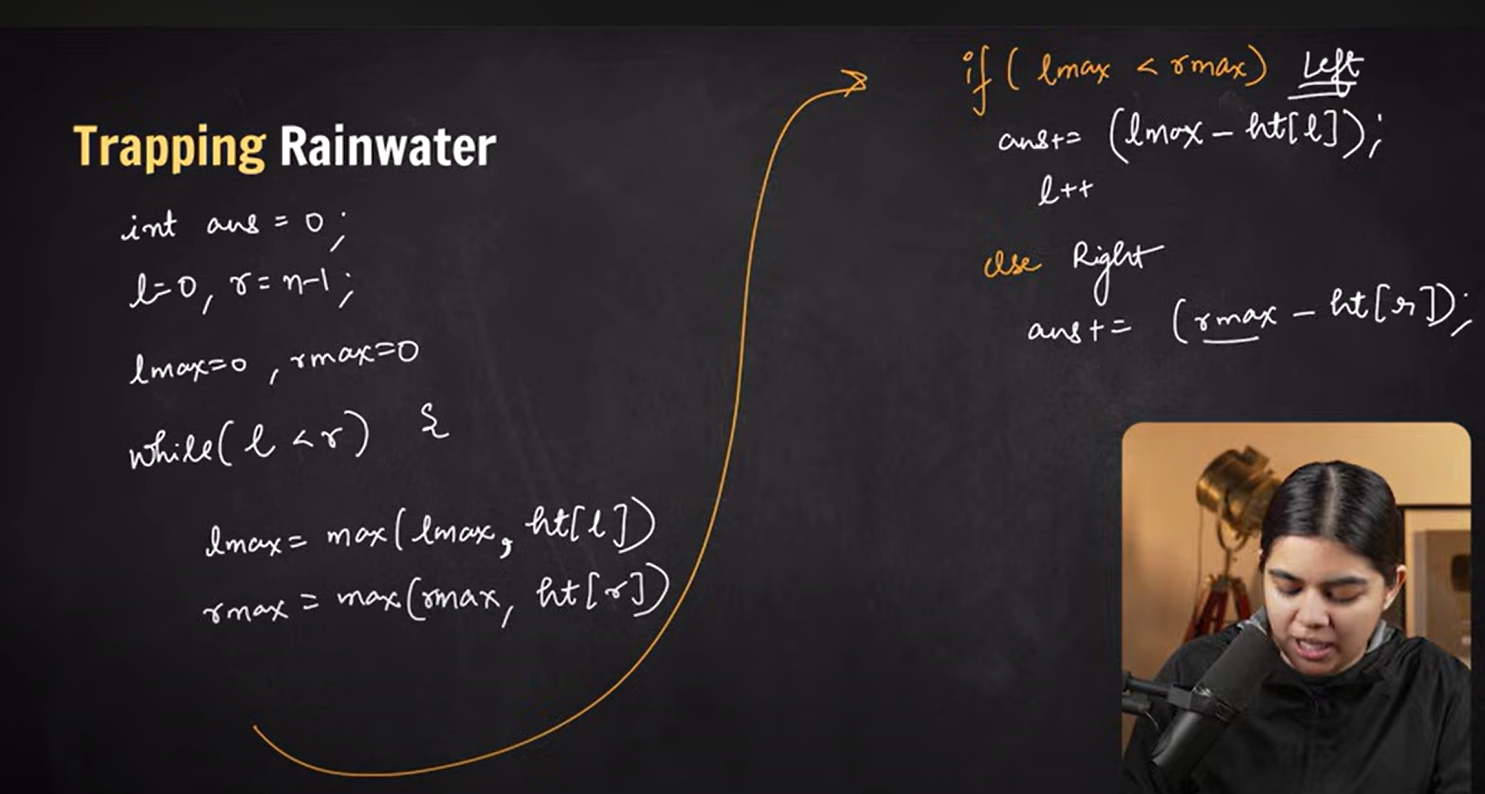 Trapping Rainwater
int ans = 0;
l=0, r=n-1;
lmax=0, rmax=0
while(l<r) {
lmax= max(lmax, ht[l])
rmax = max(rmax, ht[r])
if( lmax < rmax) Left
ans+= (lmax - ht[l]);
l++
else Right
ans+= (rmax - ht[r]);